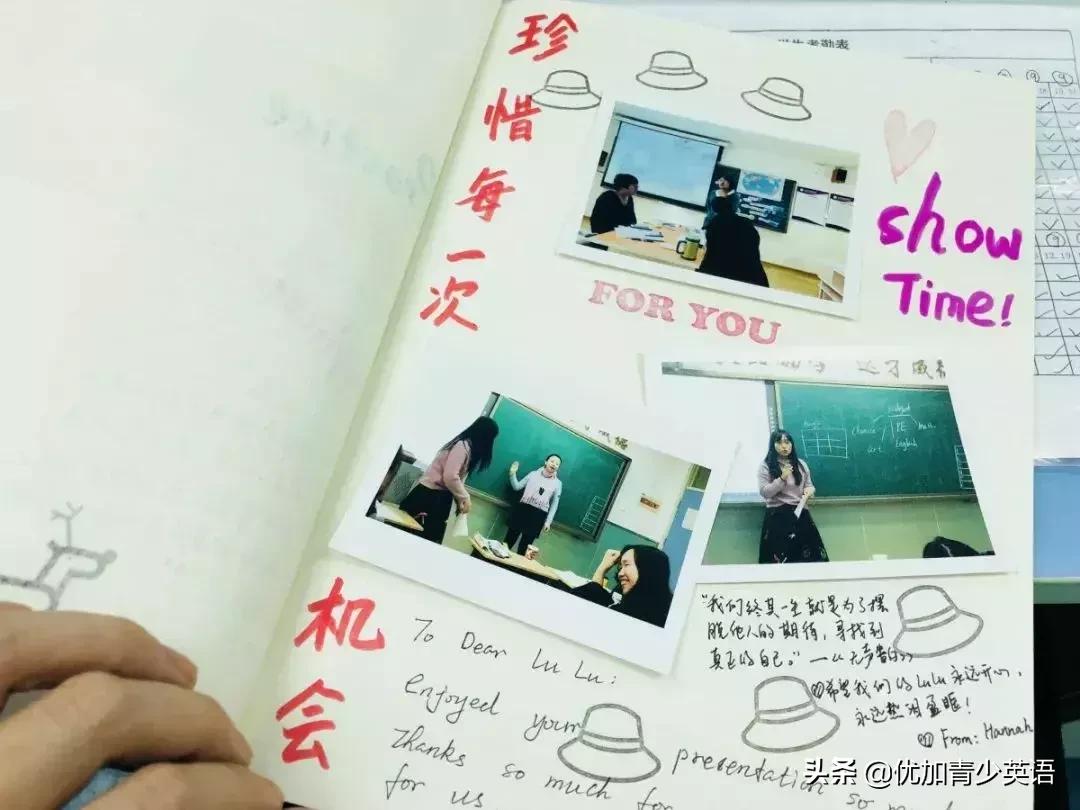 珍惜每一次
机会
show
Time!
FOR YOU
To Dear LuLu:
enjoyed your presentation so
Thanks so much for
for us
“我们终其一生就是为了摆
脱他人的期待，寻找到
真正的自己。”——《无声告白》
希望我们的LuLu永远开心，
永远热泪盈眶！
From: Hannah
考勤表
PE
English
art
头条 @优加青少英语